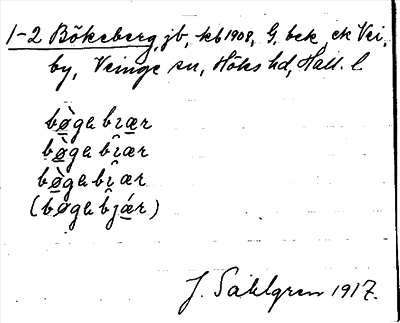 1-2 Bökeberg, jb, kb 1908, G. bek. ek Vei,
by, Veinge sn, Höks hd, Hall. l
bø̀gabıær
bø̀gabîær
bø̀gabîær
(bøgabjǽr)
J. Sahlgren 1917.